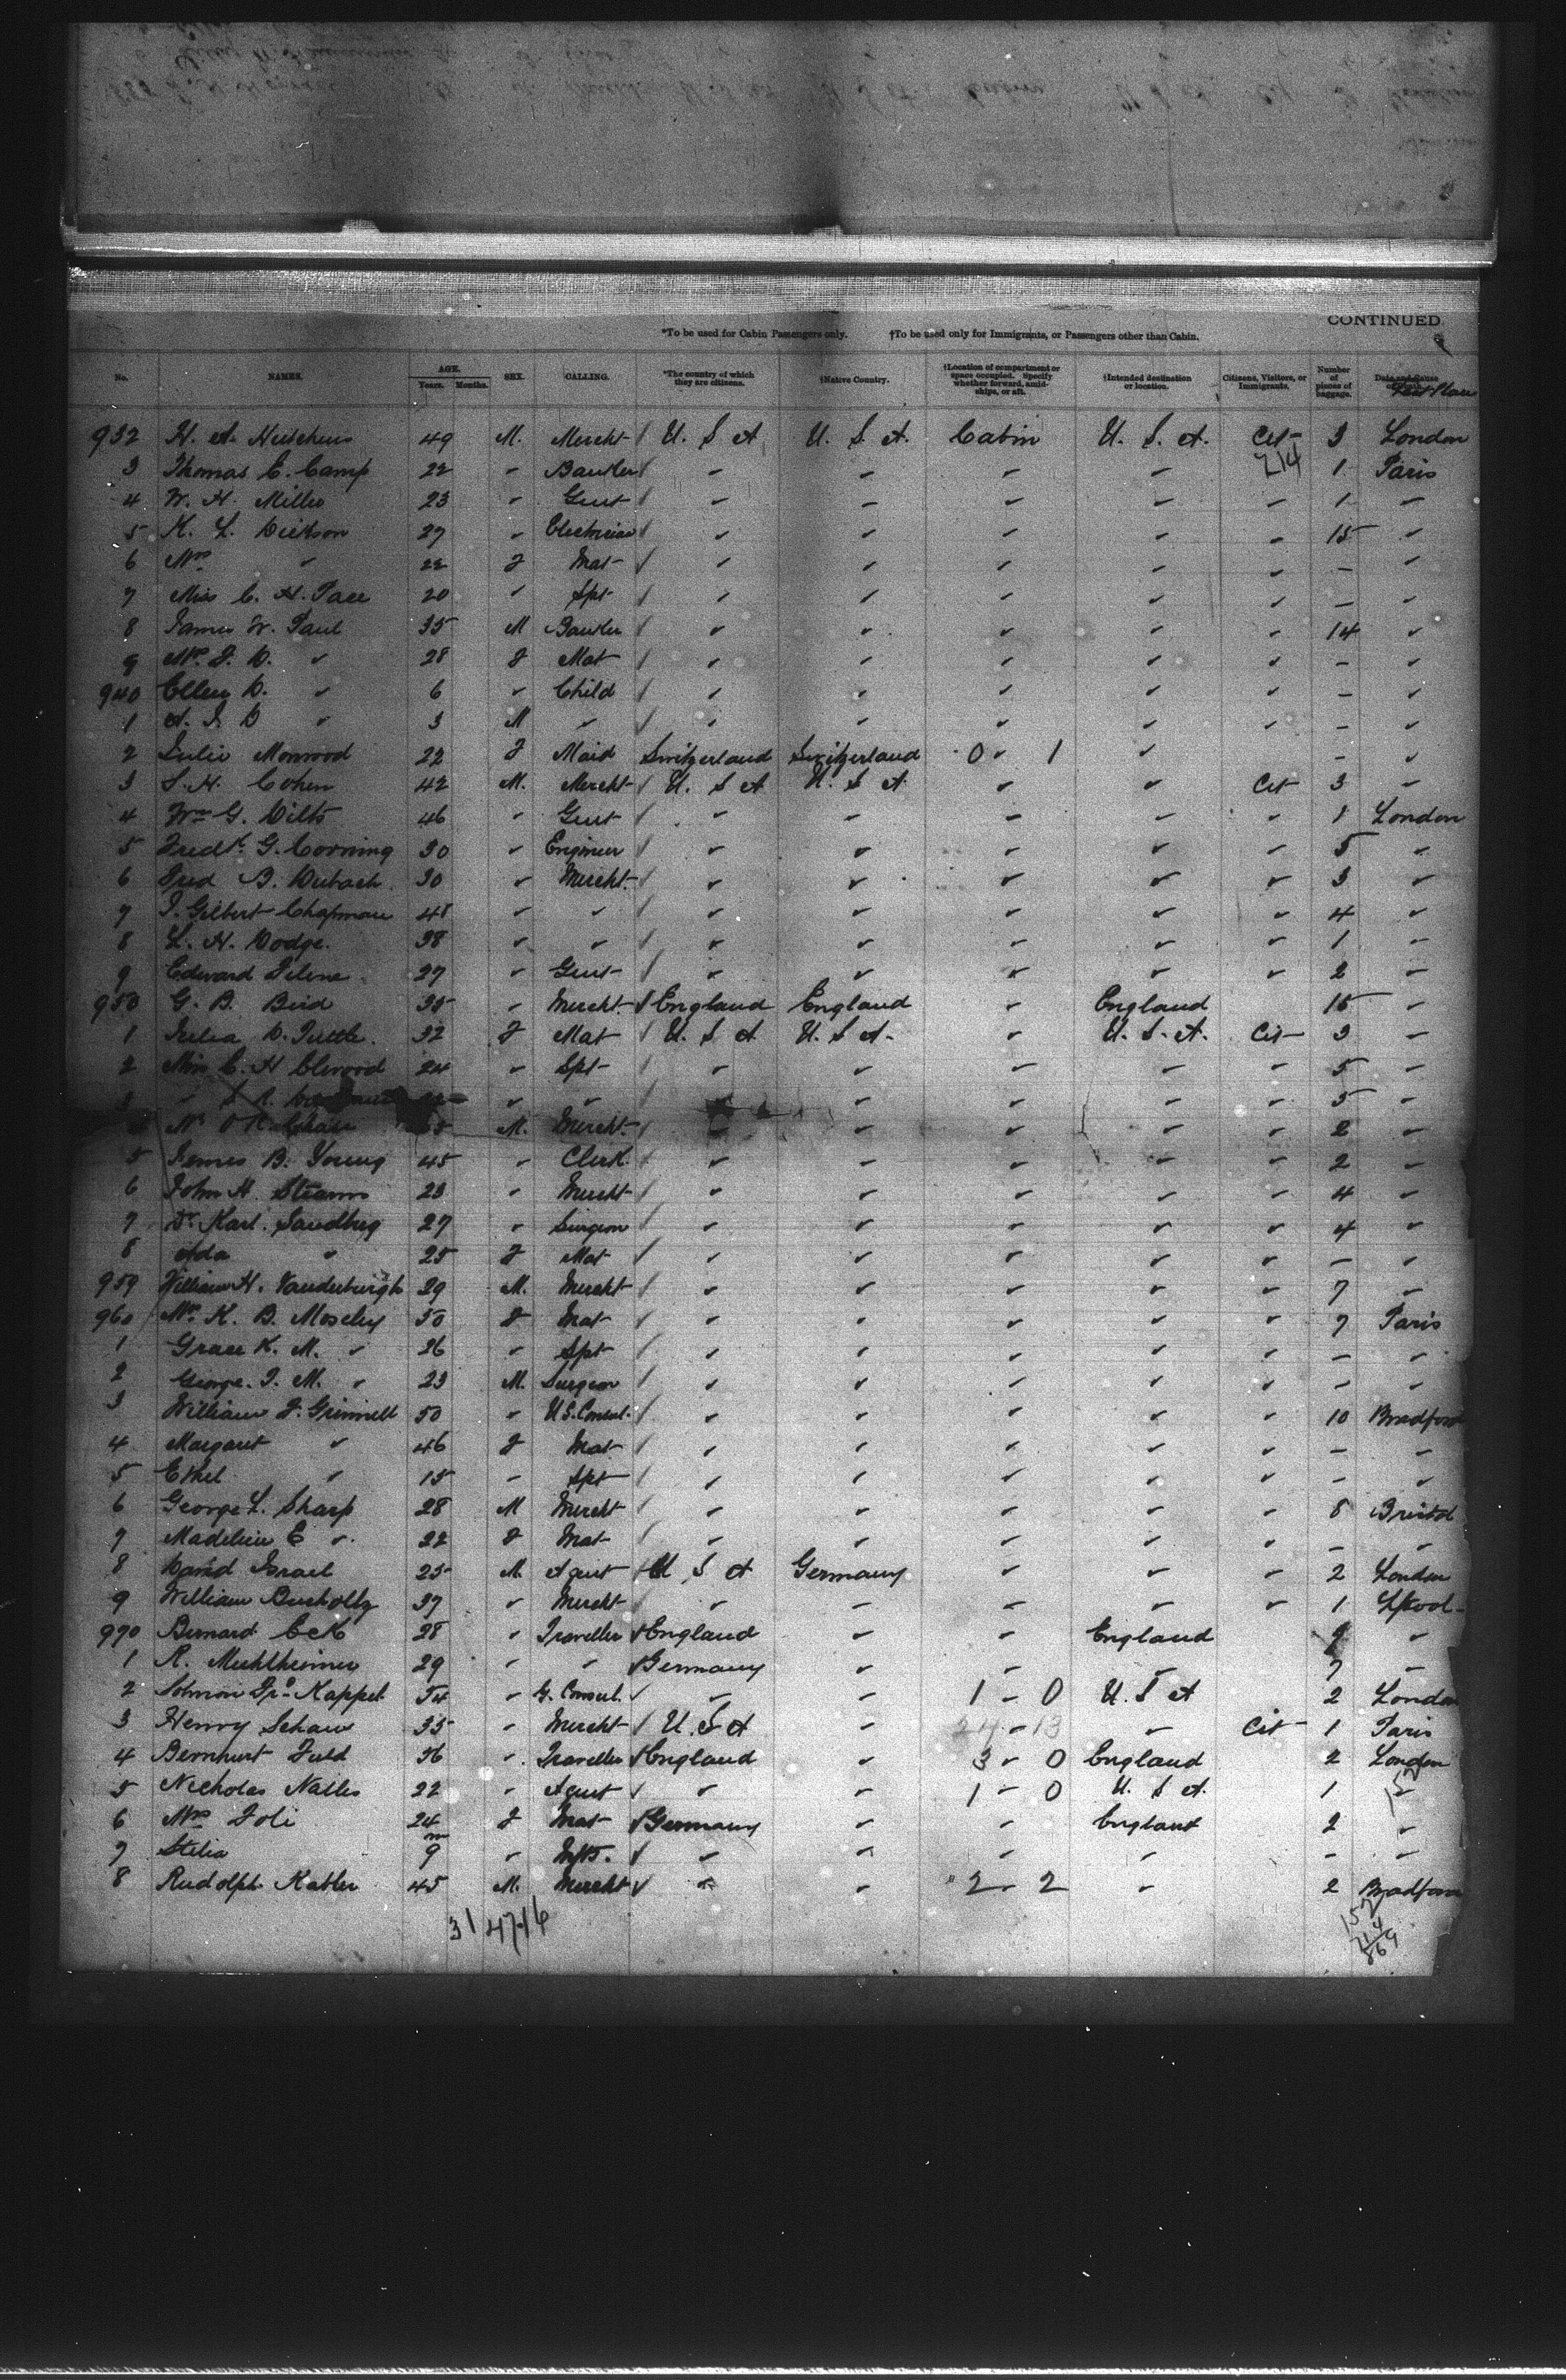 CONTINUED
*To be used for Cabin Passengers only. †To be used only for Immigrants, or Passengers other than Cabin.
No. NAMES. AGE. Years. Months. SEX. CALLING. *The country of which they are citizens. †Native Country. †Location of compartment or space occupied. Specify whether forward, amidships, or aft. †Intended destination or location. Citizens, Visitors, or Immigrants. Number of pieces of baggage. Last Place
932 H. A. Hutchins 49 M. Mercht / U. S A U. S. A. Cabin U. S. A. Cit 3 London
3 Thomas C. Camp 22 " Banker / " " " " 214 1 Paris
4 W. H. Miller 23 " Gent / " " " " " 1 "
5 K. L. Dickson 27 " Electrician / " " " " " 15 "
6 Mrs " 22 F Mat / " " " " " – "
7 Miss C. H. Pace 20 " Spt / " " " " " – "
8 James W. Paul 35 M Banker / " " " " " 14 "
9 Mrs F. D. " 28 F Mat / " " " " " – "
940 Ellen D. " 6 " Child / " " " " " – "
1 A. J. D " 3 M " / " " " " " – "
2 Julie Monvood 22 F Maid Switzerland Switzerland 0 – 1 " – "
3 S. H. Cohen 42 M. Mercht / U. S A U. S A " " Cit 3 "
4 Wm G. Dilts 46 " Gent / " " " " " 1 London
5 Fredk G. Corning 30 " Engineer / " " " " " 5 "
6 Fred B. 30 " Mercht. / " " " " " 3 "
7 J. Gilbert Chapman 48 " " / " " " " " 4 "
8 L. H. Dodge. 38 " " / " " " " " 1 "
9 Edward Filene 27 " Gent / " " " " " 2 "
950 G. B. Bird 35 " Mercht. / England England " England 15 "
1 Julia D. Tuttle. 32 F Mat / U. S A U. S A. " U. S. A. Cit 3 "
2 Miss C. H Elwood 24 " Spt " " " " " 5 "
3 " S. R. " " " " " " " 5 "
N. M. Mercht. " " " " " 2 "
5 James B. Young 45 " Clerk. / " " " " " 2 "
6 John H. Stearns 23 " Mercht / " " " " " 4 "
7 Dr Karl. Sandberg 27 " Surgeon / " " " " " 4 "
8 Ada " 25 F Mat / " " " " " – "
959 William H. Vanderburgh 29 M. Mercht / " " " " " 7 "
960 Mrs K. B. Moseley 50 F Mat / " " " " " 7 Paris
1 Grace K. M. " 26 " Spt / " " " " " – "
2 George. J. M. " 23 M. Surgeon / " " " " " – "
3 William F. Grinnell 50 " U S. Consul. / " " " " " 10 Bradford
4 Margaret " 46 F Mat / " " " " " – "
5 Ethel " 15 " Spt / " " " " " – "
6 George L. Sharp 28 M Mercht / " " " " " 8 Bristol
7 Madeleine E " 22 F Mat / " " " " " – "
8 David Israel 25 M Agent / U S A Germany " " " 2 London
9 William Bucholtz 37 " Mercht / " " " " " 1 L'pool
970 Bernard Eck 28 " Traveller / England " " England "
1 R. Muhlheimer 29 " " / Germany " " " 7 "
2 Kappel 54 " G. Consul. / " " 1 – 0 U. S A 2 London
3 Henry Schaw 35 " Mercht / U. S A " 24 – 13 " Cit 1 Paris
4 Bernhurt Fuld 36 " Traveller / England " 3 – 0 England 2 London
5 Nicholas Nalles 22 " Agent / " " 1 – 0 U. S A. 1
6 Mrs Foli 24 F Mat / Germany " " England 2 "
7 Stelia 9 m " Inft. / " " " " – "
8 Rudolph Kahler 45 M. Mercht / " " 2 – 2 " 2 Bradford
31 47-16